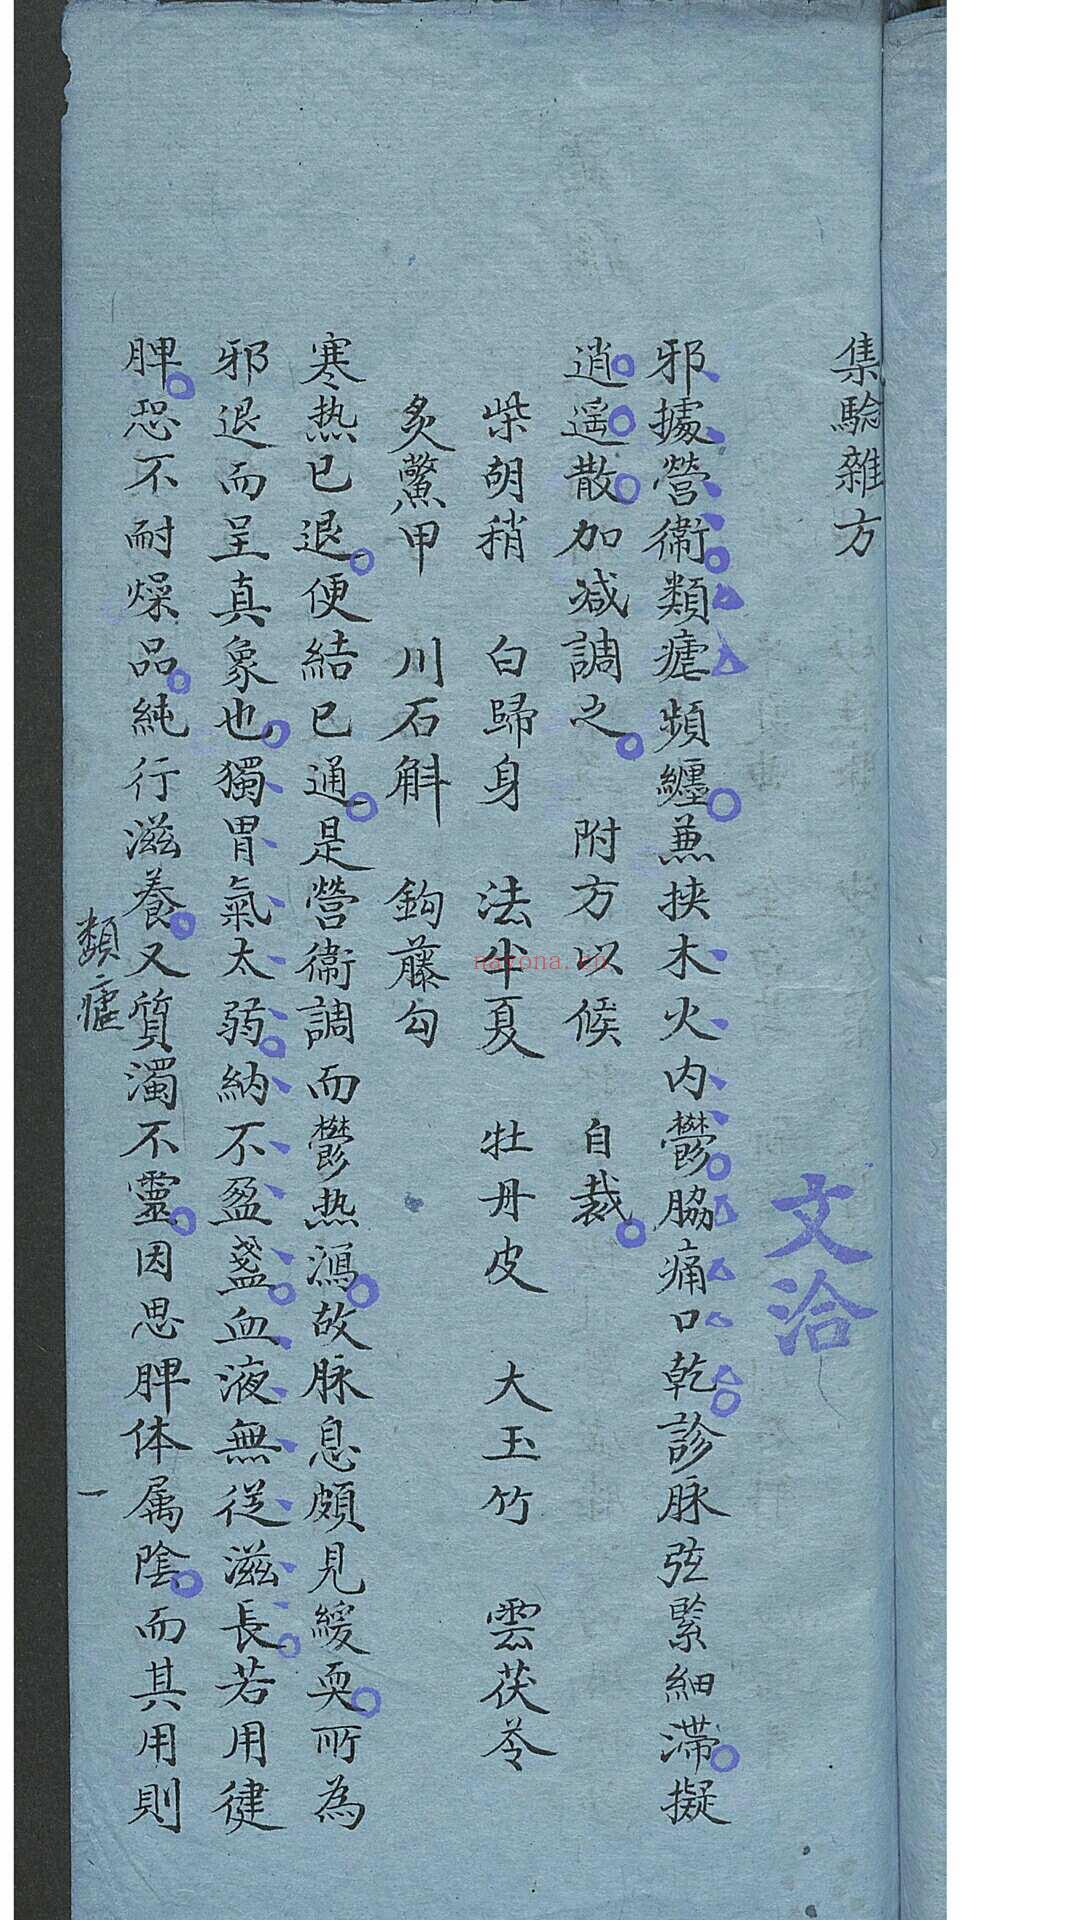 集驗雜方
文洽
邪據營衛類瘧頻纏兼挾木火内鬱脇痛口乾診脉弦緊細滯擬
逍遥散加减調之 附方以候 自裁
柴胡稍 白歸身 法半夏 牡丹皮 大玉竹 雲茯苓
炙鱉甲 川石斛 鈎藤勾
寒热已退便結已通是營衛調而鬱热瀉故脉息頗見緩耎所為
邪退而呈真象也獨胃氣太弱納不盈盞血液無従滋長若用健
脾恐不耐燥品純行滋養又質濁不靈因思脾体属陰而其用則
類瘧
一
nayona.cn